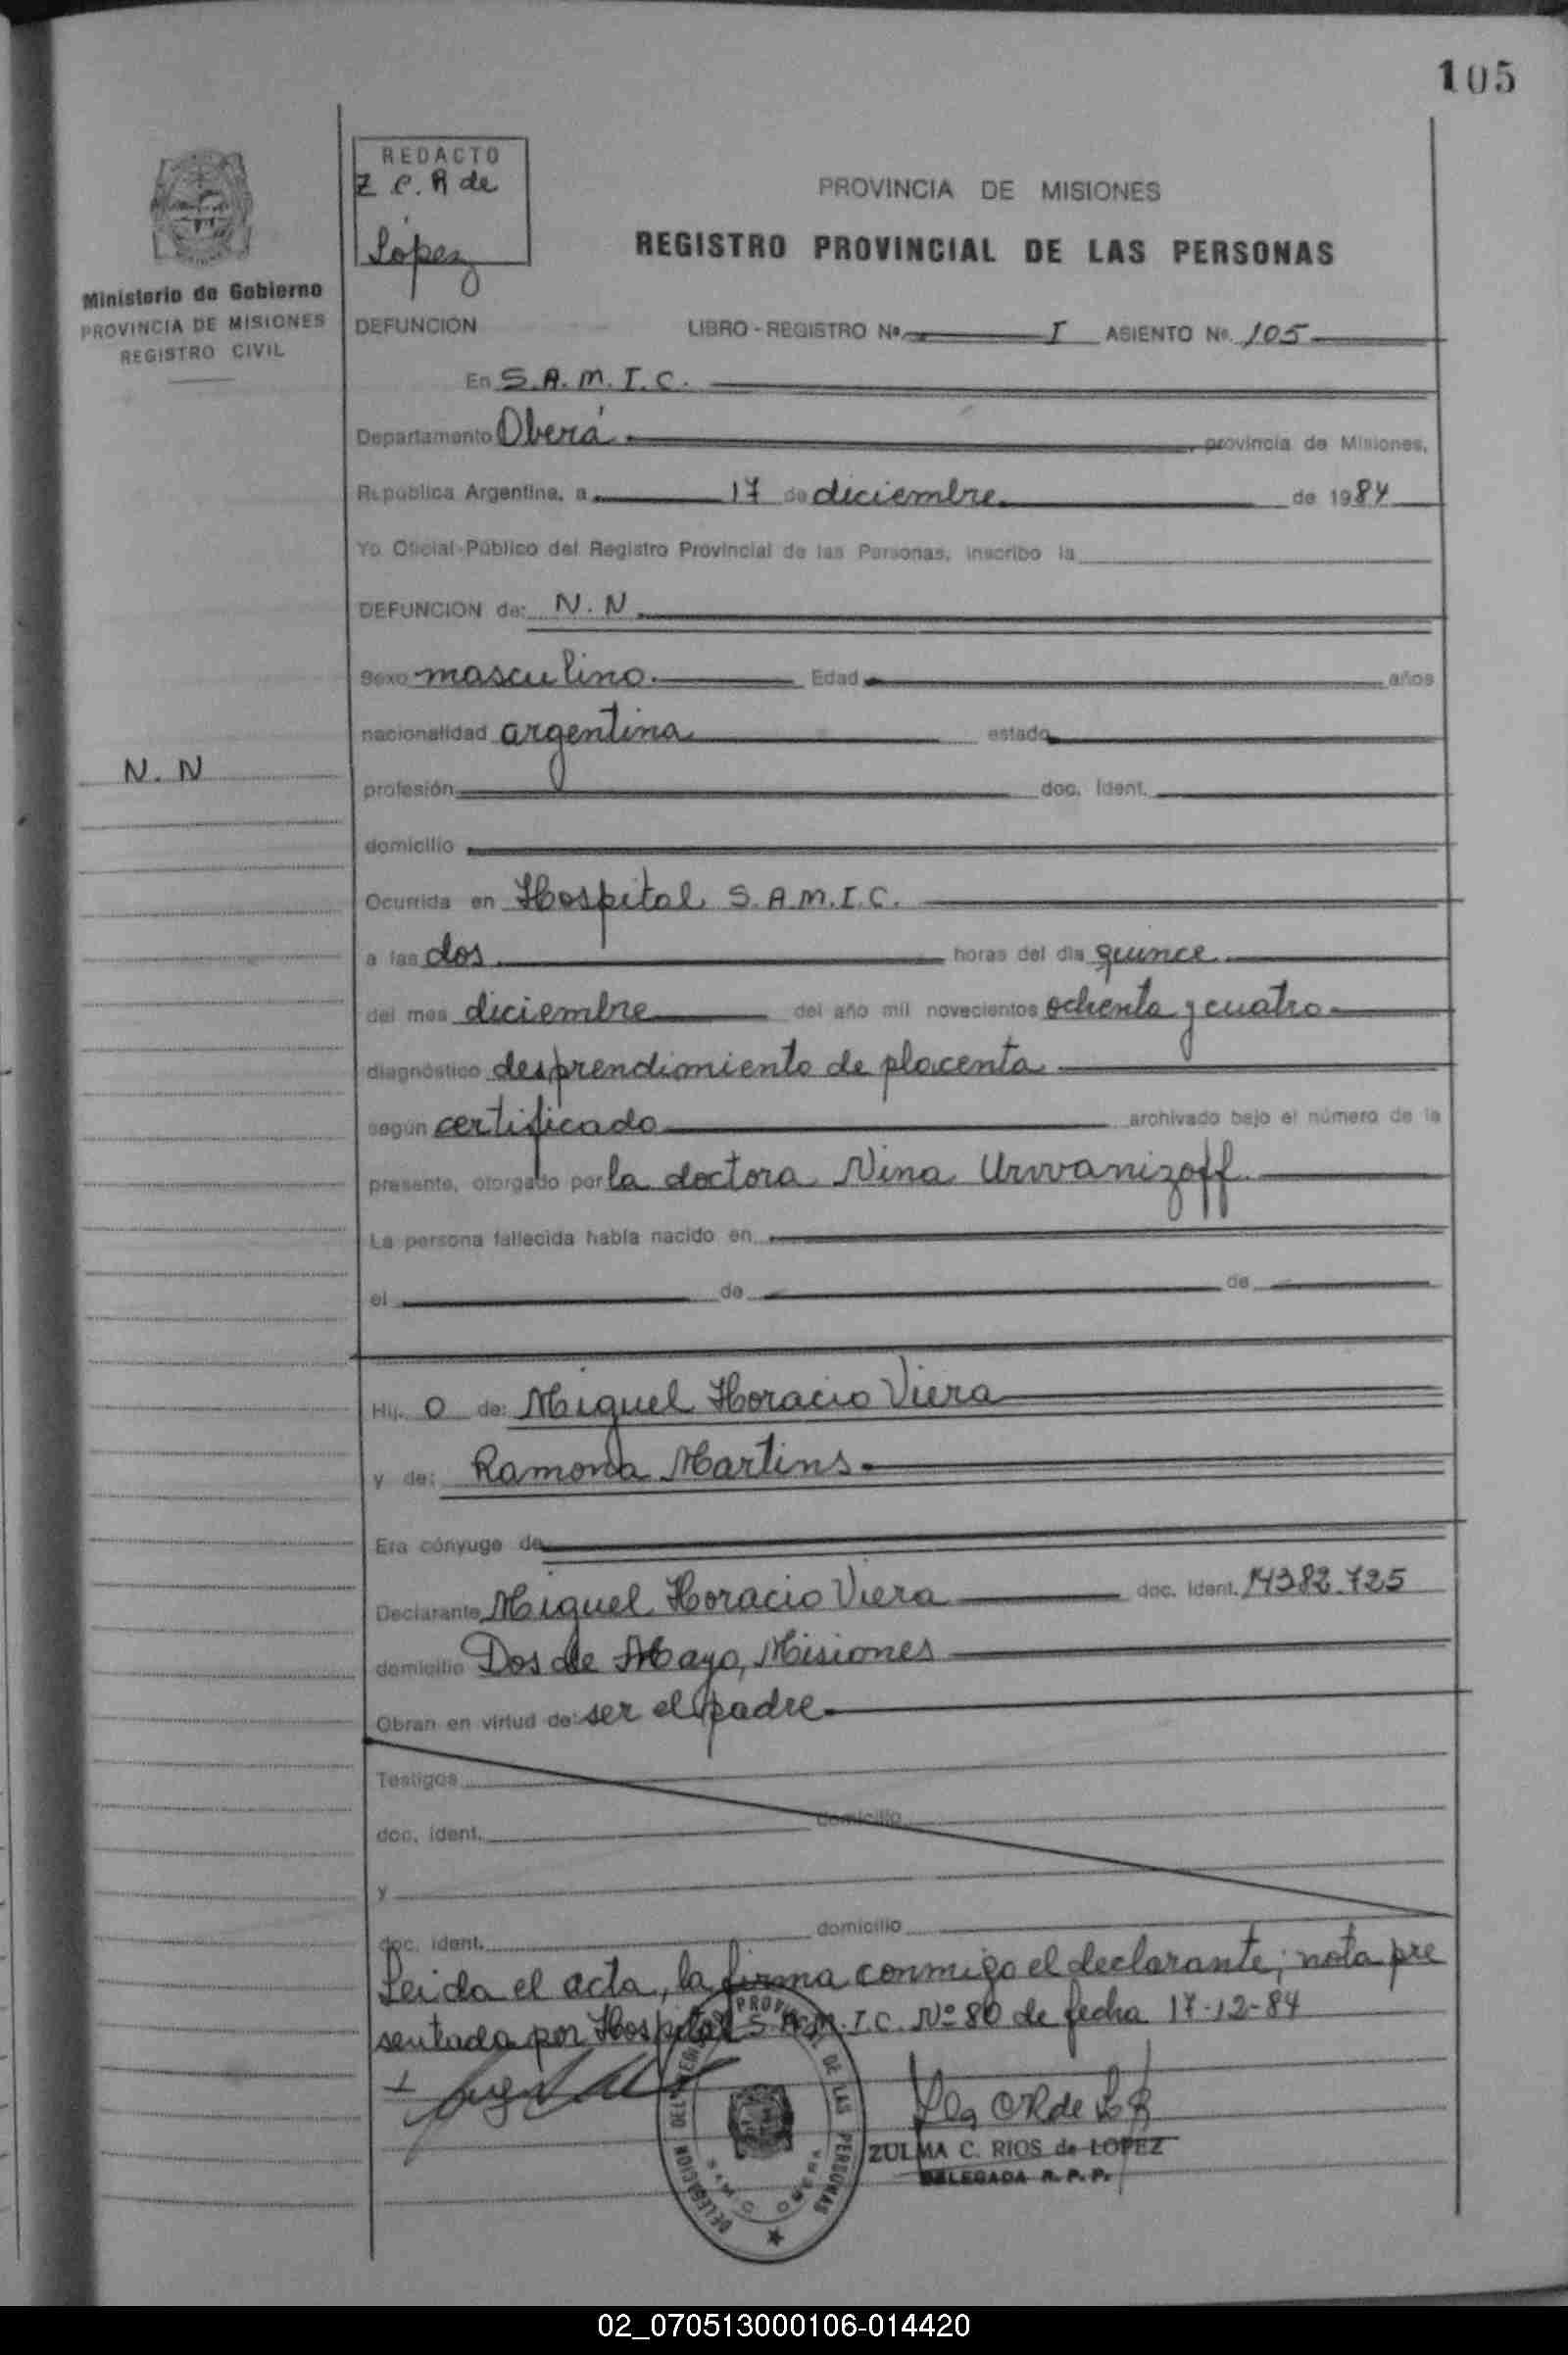 105
REDACTO
Z C. R de
López
PROVINCIA DE MISIONES
REGISTRO PROVINCIAL DE LAS PERSONAS
Ministerio de Gobierno
PROVINCIA DE MISIONES
REGISTRO CIVIL
DEFUNCION LIBRO - REGISTRO Nº I ASIENTO Nº. 105
En S.A.M.I.C.
Departamento Oberá , provincia de Misiones,
República Argentina, a 17 de diciembre de 1984
Yo Oficial Público del Registro Provincial de las Personas, inscribo la
DEFUNCION de: N. N
Sexo masculino. Edad años
nacionalidad argentina estado
N. N
profesión doc. Ident.
domicilio
Ocurrida en Hospital S.A.M.I.C.
a las dos horas del día quince
del mes diciembre del año mil novecientos ochenta y cuatro
diagnóstico desprendimiento de placenta
según certificado archivado bajo el número de la
presente, otorgado por la doctora Nina
La persona fallecida había nacido en
el de de
Hij. o de: Miguel Horacio Viera
y de: Ramona Martins
Era cónyuge de
Declarante Miguel Horacio Viera doc. Ident. 14382.725
domicilio Dos de Mayo, Misiones
Obran en virtud de: ser el padre
Testigos
doc. ident. domicilio
y
doc. ident. domicilio
Leida el acta, la firma conmigo el declarante; nota pre
sentada por Hospital S.A.M.I.C. Nº 80 de fecha 17-12-84
DELEGACION DEL REGISTRO PROVINCIAL DE LAS PERSONAS
ZULMA C. RIOS de LOPEZ
DELEGADA R. P. P.
02_070513000106-014420